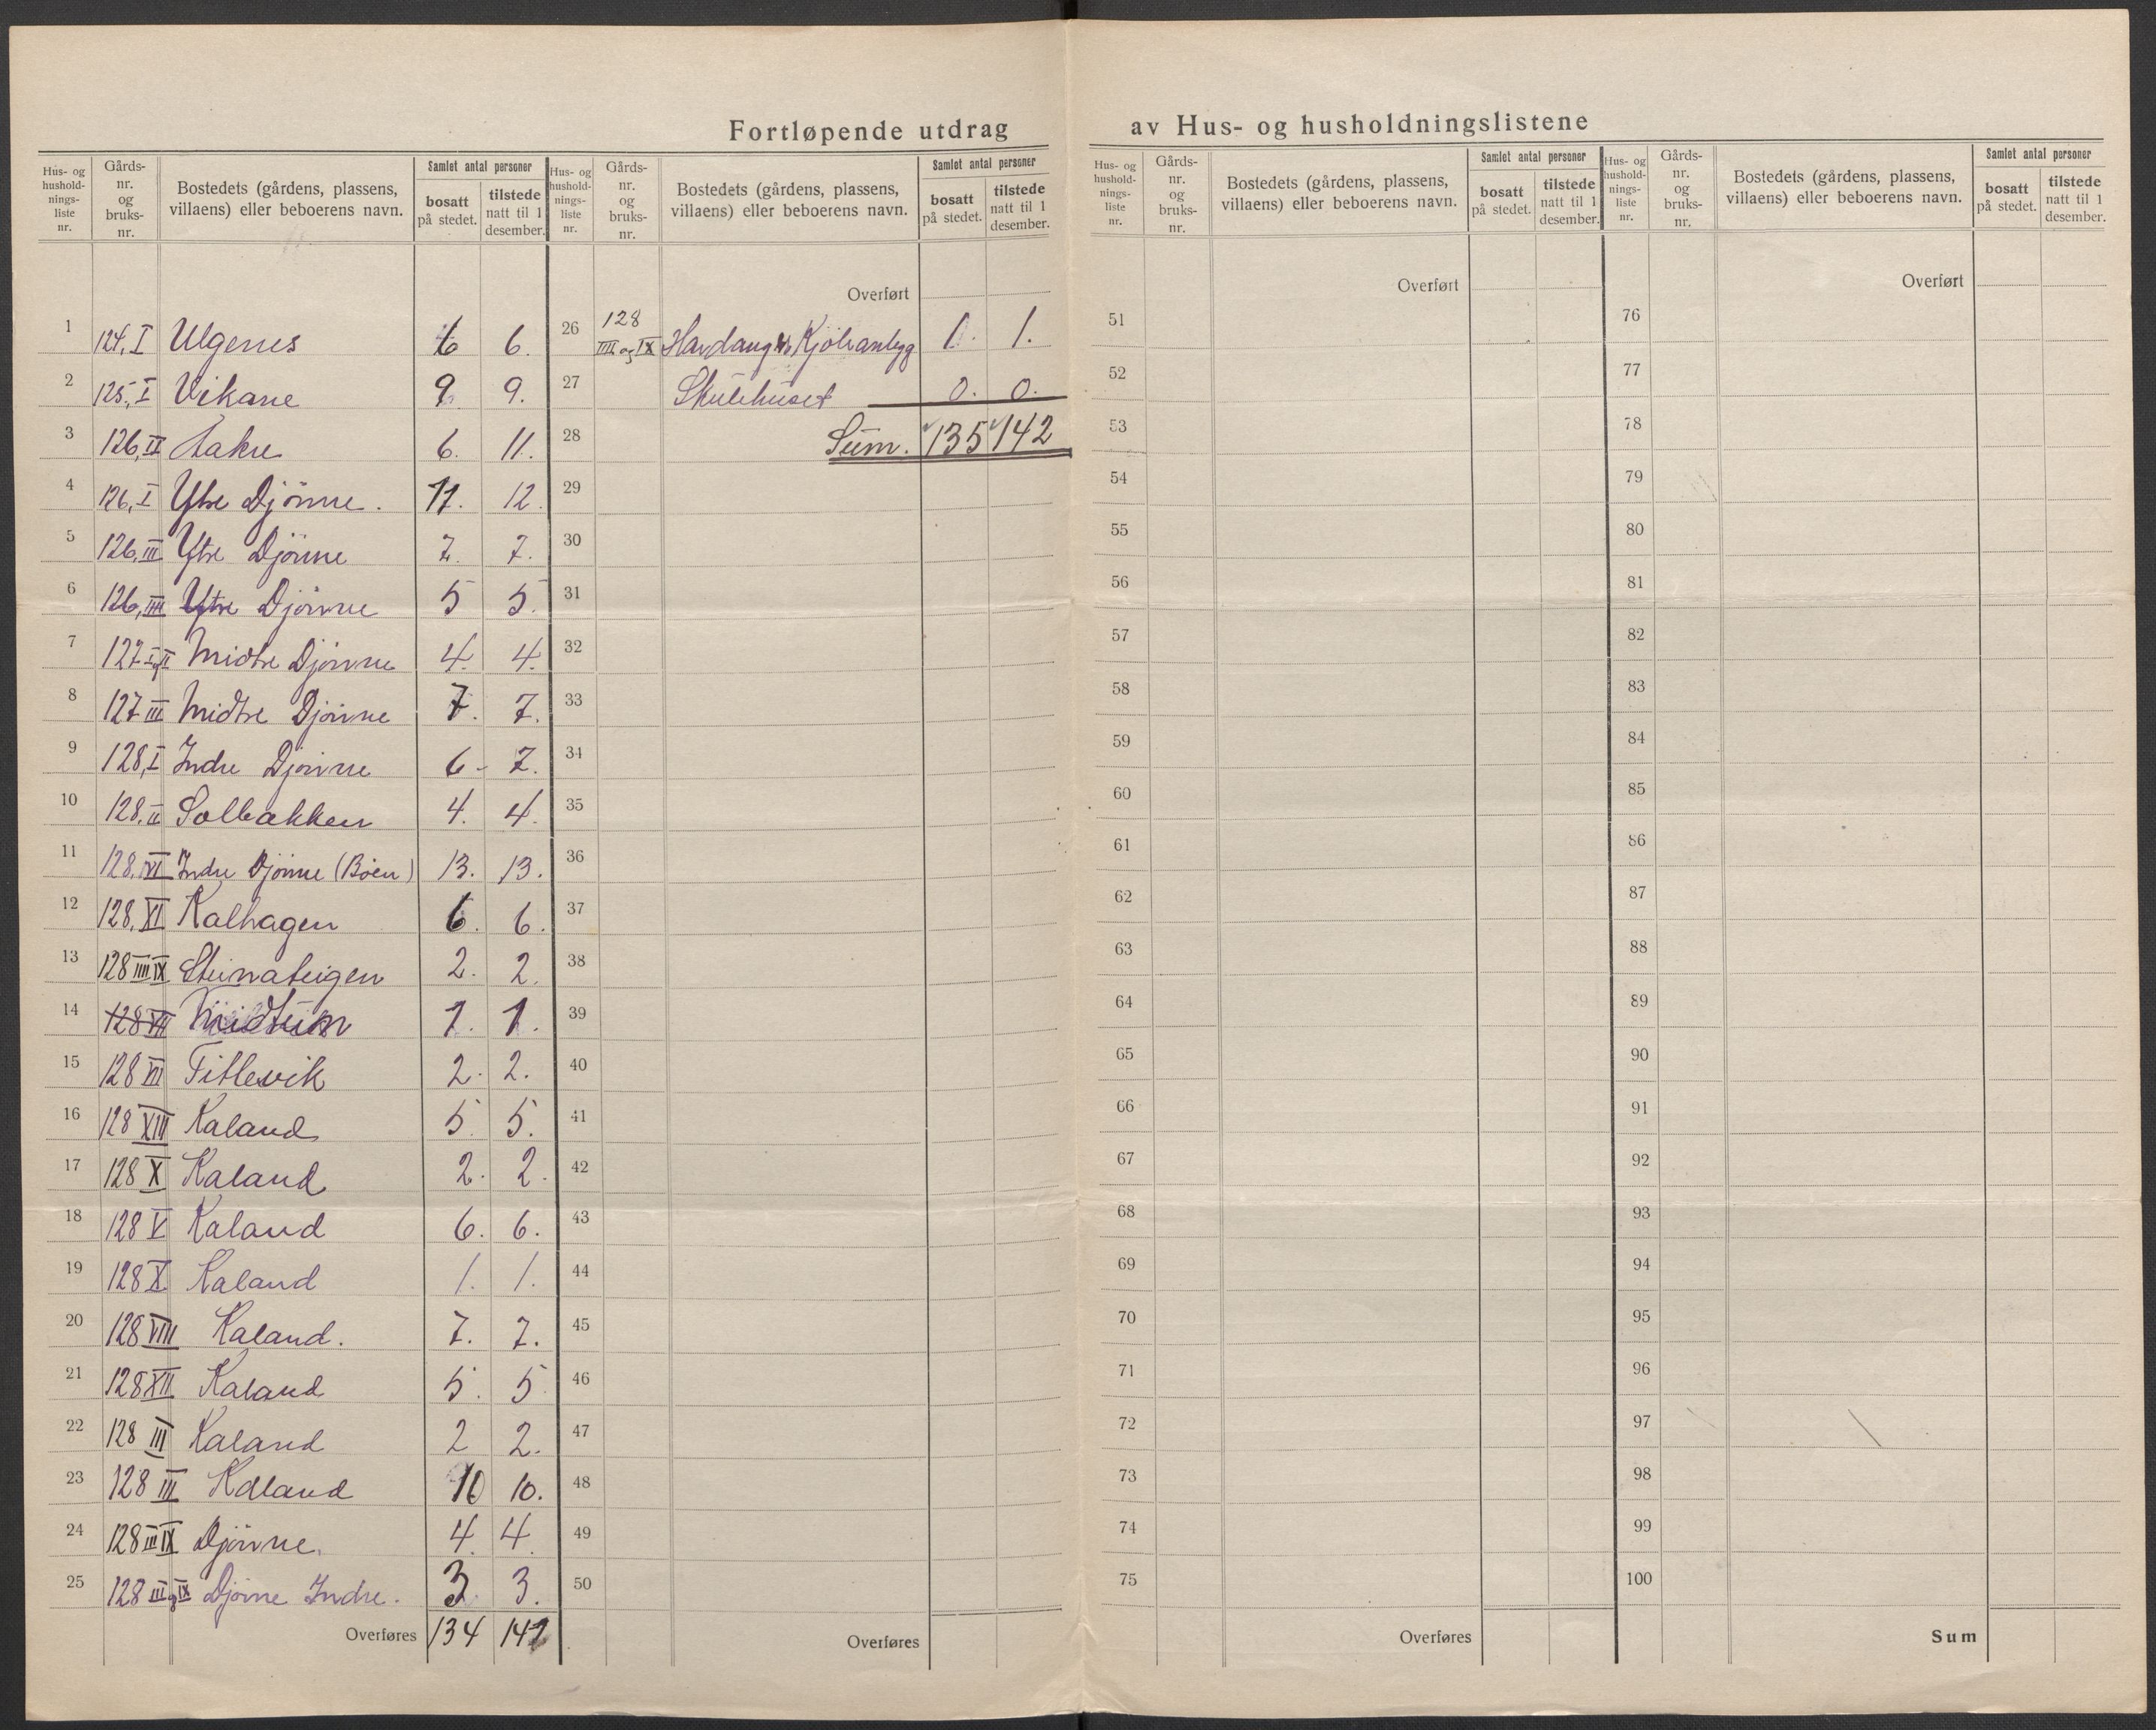 Fortløpende utdrag av Hus- og husholdningslistene
Hus- og hushold-nings-liste nr. | Gårds-nr. og bruks-nr. | Bostedets (gårdens, plassens, villaens) eller beboerens navn. | Samlet antal personer | bosatt på stedet. | tilstede natt til 1 desember.
1 124, I Ulgenes 6 6.
2 125, I Vikane 9. 9.
3 126, II Aakre 6. 11.
4 126, I Ytre Djönne. 11. 12.
5 126, III Ytre Djönne 7. 7.
6 126, IIII Ytre Djönne 5 5.
7 127 I og II Midtre Djönne 4. 4.
8 127 III Midtre Djönne 7. 7.
9 128, I Indre Djönne 6- 7.
10 128. II Solbakken 4. 4.
11 128. VI Indre Djönne (Böen) 13. 13.
12 128. XI Kalhagen 6. 6.
13 128 IIII IX Steinateigen 2. 2.
14 128 VII Midtun 1. 1.
15 128 VII Titlevik 2. 2.
16 128 XIII Kaland 5. 5.
17 128 X Kaland 2. 2.
18 128 V Kaland 6. 6.
19 128 X Kaland 1. 1.
20 128 VIII Kaland. 7. 7.
21 128 XII Kaland 5. 5
22 128 III Kaland 2 2.
23 128 III Kaland 10 10.
24 128 III IX Djönne. 4. 4.
25 128 III og IX Djönne Indre. 3. 3.
Overføres 134 141
Hus- og hushold-nings-liste nr. | Gårds-nr. og bruks-nr. | Bostedets (gårdens, plassens, villaens) eller beboerens navn. | Samlet antal personer | bosatt på stedet. | tilstede natt til 1 desember.
Overført
26 128 IIII og IX Hardang Kjöleanlegg 1. 1.
27 Skulehuset 0. 0.
28 Sum. 135 142
29
30
31
32
33
34
35
36
37
38
39
40
41
42
43
44
45
46
47
48
49
50
Overføres
Hus- og hushold-nings-liste nr. | Gårds-nr. og bruks-nr. | Bostedets (gårdens, plassens, villaens) eller beboerens navn. | Samlet antal personer | bosatt på stedet. | tilstede natt til 1 desember.
Overført
51
52
53
54
55
56
57
58
59
60
61
62
63
64
65
66
67
68
69
70
71
72
73
74
75
Overføres
Hus- og hushold-nings-liste nr. | Gårds-nr. og bruks-nr. | Bostedets (gårdens, plassens, villaens) eller beboerens navn. | Samlet antal personer | bosatt på stedet. | tilstede natt til 1 desember.
Overført
76
77
78
79
80
81
82
83
84
85
86
87
88
89
90
91
92
93
94
95
96
97
98
99
100
Sum